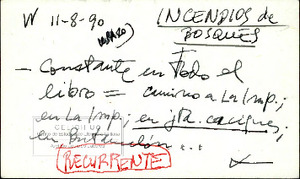 W 11-8-90
INCENDIOS de
BOSQUES
- Constante en todo el
libro = camino a La Imp.;
en La Imp.; en jta. caciques;
en
RECURRENTE